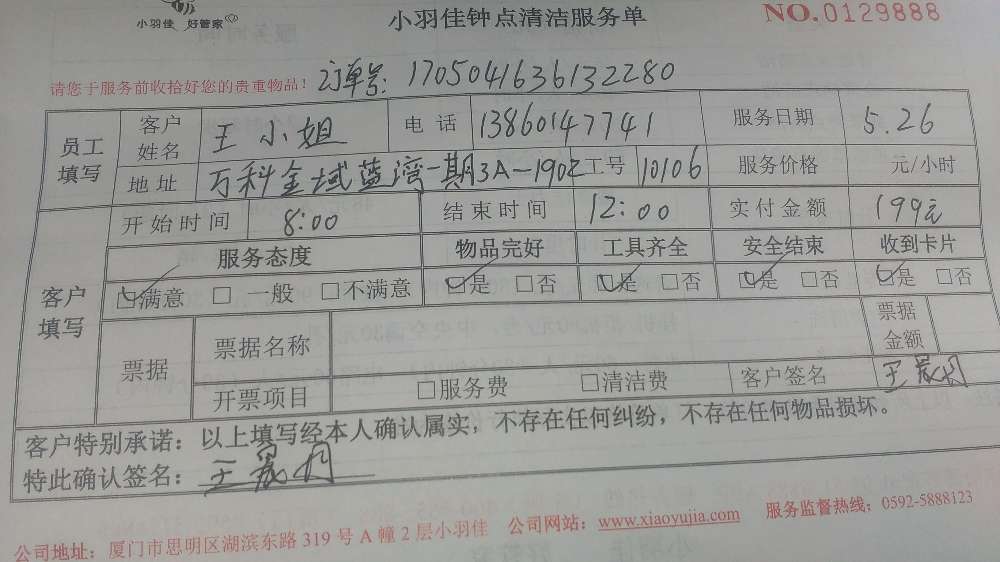 小羽佳 好管家
小羽佳钟点清洁服务单
NO.0129888
请您于服务前收拾好您的贵重物品！ 订单号：1705041636132280
员工填写 客户姓名 王小姐 电话 13860147741 服务日期 5.26
地址 万科金域蓝湾一期3A-1902 工号 10106 服务价格 元/小时
客户填写 开始时间 8:00 结束时间 12:00 实付金额 199元
服务态度 物品完好 工具齐全 安全结束 收到卡片
☑满意 □一般 □不满意 ☑是 □否 ☑是 □否 ☑是 □否 ☑是 □否
票据 票据名称 票据金额
开票项目 □服务费 □清洁费 客户签名 王
客户特别承诺：以上填写经本人确认属实，不存在任何纠纷，不存在任何物品损坏。
特此确认签名：王
公司地址：厦门市思明区湖滨东路 319 号 A 幢 2 层小羽佳 公司网站：www.xiaoyujia.com 服务监督热线：0592-5888123